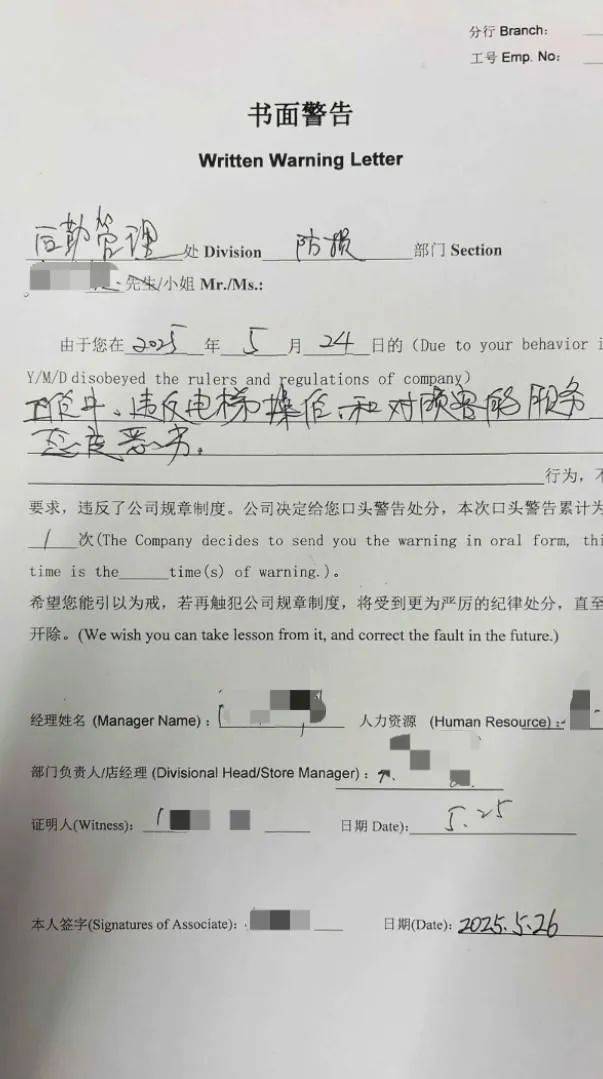 分行 Branch:
工号 Emp. No:
书面警告
Written Warning Letter
后勤管理 处 Division 防损 部门 Section
先生/小姐 Mr./Ms.:
由于您在 2025 年 5 月 24 日的 (Due to your behavior i
Y/M/D disobeyed the rulers and regulations of company)
工作中、违反电梯操作、和对顾客的服务
态度恶劣。
行为，不
要求，违反了公司规章制度。公司决定给您口头警告处分，本次口头警告累计为
1 次(The Company decides to send you the warning in oral form, thi
time is the______time(s) of warning.)。
希望您能引以为戒，若再触犯公司规章制度，将受到更为严厉的纪律处分，直至
开除。(We wish you can take lesson from it, and correct the fault in the future.)
经理姓名 (Manager Name) : 人力资源 (Human Resource) :
部门负责人/店经理 (Divisional Head/Store Manager) :
证明人(Witness): 日期 Date): 5.25
本人签字(Signatures of Associate): 日期(Date): 2025.5.26